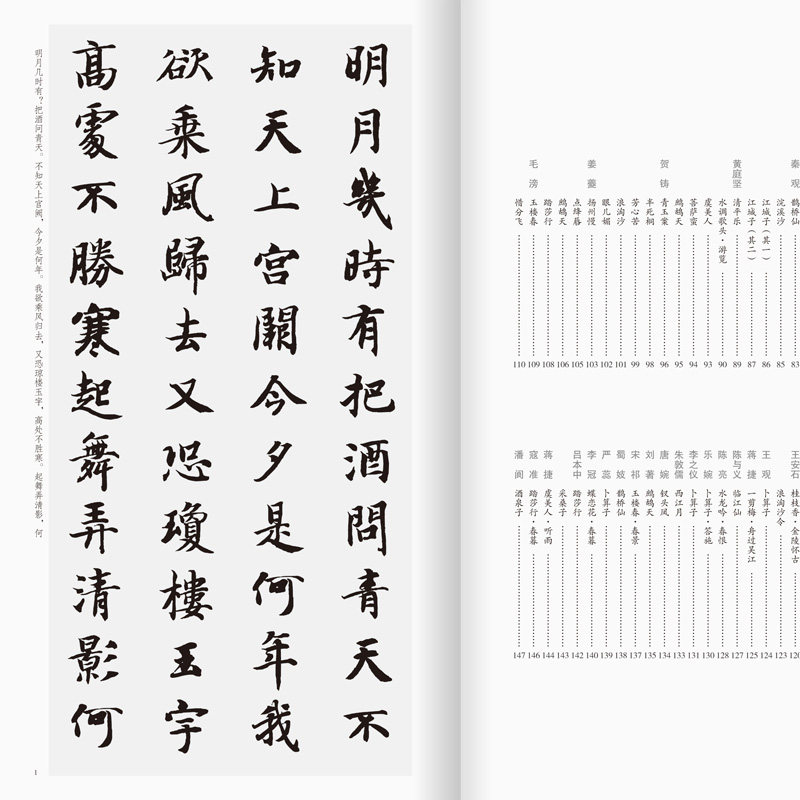 明月幾時有把酒問青天不
知天上宫闕今夕是何年我
欲乘風歸去又恐瓊樓玉宇
髙處不勝寒起舞弄清影何
明月几时有？把酒问青天。不知天上宫阙，今夕是何年。我欲乘风归去，又恐琼楼玉宇，高处不胜寒。起舞弄清影，何
1
秦观 鹊桥仙 83
浣溪沙 85
江城子（其一） 86
江城子（其二） 87
黄庭坚 清平乐 89
水调歌头·游览 90
虞美人 93
菩萨蛮 94
鹧鸪天 95
贺铸 青玉案 96
半死桐 98
芳心苦 99
浪淘沙 101
眼儿媚 102
姜夔 扬州慢 103
点绛唇 105
鹧鸪天 106
踏莎行 108
毛滂 玉楼春 109
惜分飞 110
王安石 桂枝香·金陵怀古 120
浪淘沙令 123
王观 卜算子 124
蒋捷 一剪梅·舟过吴江 125
陈与义 临江仙 127
陈亮 水龙吟·春恨 128
乐婉 卜算子·答施 130
李之仪 卜算子 131
朱敦儒 西江月 133
唐婉 钗头凤 134
刘著 鹧鸪天 135
宋祁 玉楼春·春景 137
蜀妓 鹊桥仙 138
严蕊 卜算子 139
李冠 蝶恋花·春暮 140
吕本中 踏莎行 142
采桑子 143
蒋捷 虞美人·听雨 144
寇准 踏莎行·春暮 146
潘阆 酒泉子 147